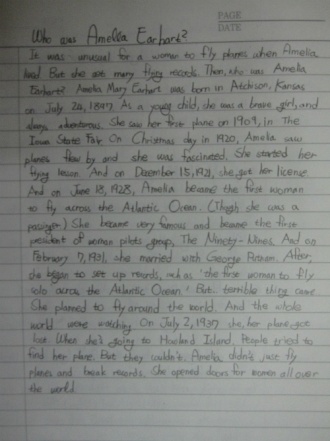 PAGE
DATE
Who was Amelia Earhart?
It was unusual for a woman to fly planes when Amelia
lived. But she set many flying records. Then, who was Amelia
Earhart? Amelia Mary Earhart was born in Atchison, Kansas
on July 24, 1897. As a young child, she was a brave girl, and
always adventurous. She saw her first plane on 1909, in The
Iowa State Fair. On Christmas day in 1920, Amelia saw
planes flew by and she was fascinated. She started her
flying lesson. And on December 15, 1921, she got her license.
And on June 18, 1928, Amelia became the first woman
to fly across the Atlantic Ocean. (Though she was a
passenger) She became very famous and became the first
president of woman pilots group, The Ninety-Nines. And on
February 7, 1931, she married with George Putnam. After,
she began to set up records, such as 'the first woman to fly
solo across the Atlantic Ocean.' But.. terrible thing came.
She planned to fly around the world. And the whole
world were watching. On July 2, 1937 she, her plane, got
lost. When she's going to Howland Island. People tried to
find her plane. But they couldn't. Amelia didn't just fly
planes and break records. She opened doors for women all over
the world.